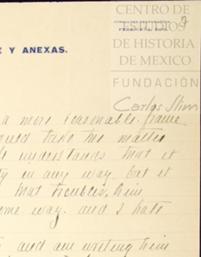 CENTRO DE
ESTUDIOS
DE HISTORIA
DE MEXICO
FUNDACIÓN
Carlos Slim
Y ANEXAS.
a more reasonable frame
ould take the matter
understands that it
in any way but it
that troubles him
ome way. and I hate
and am writing him